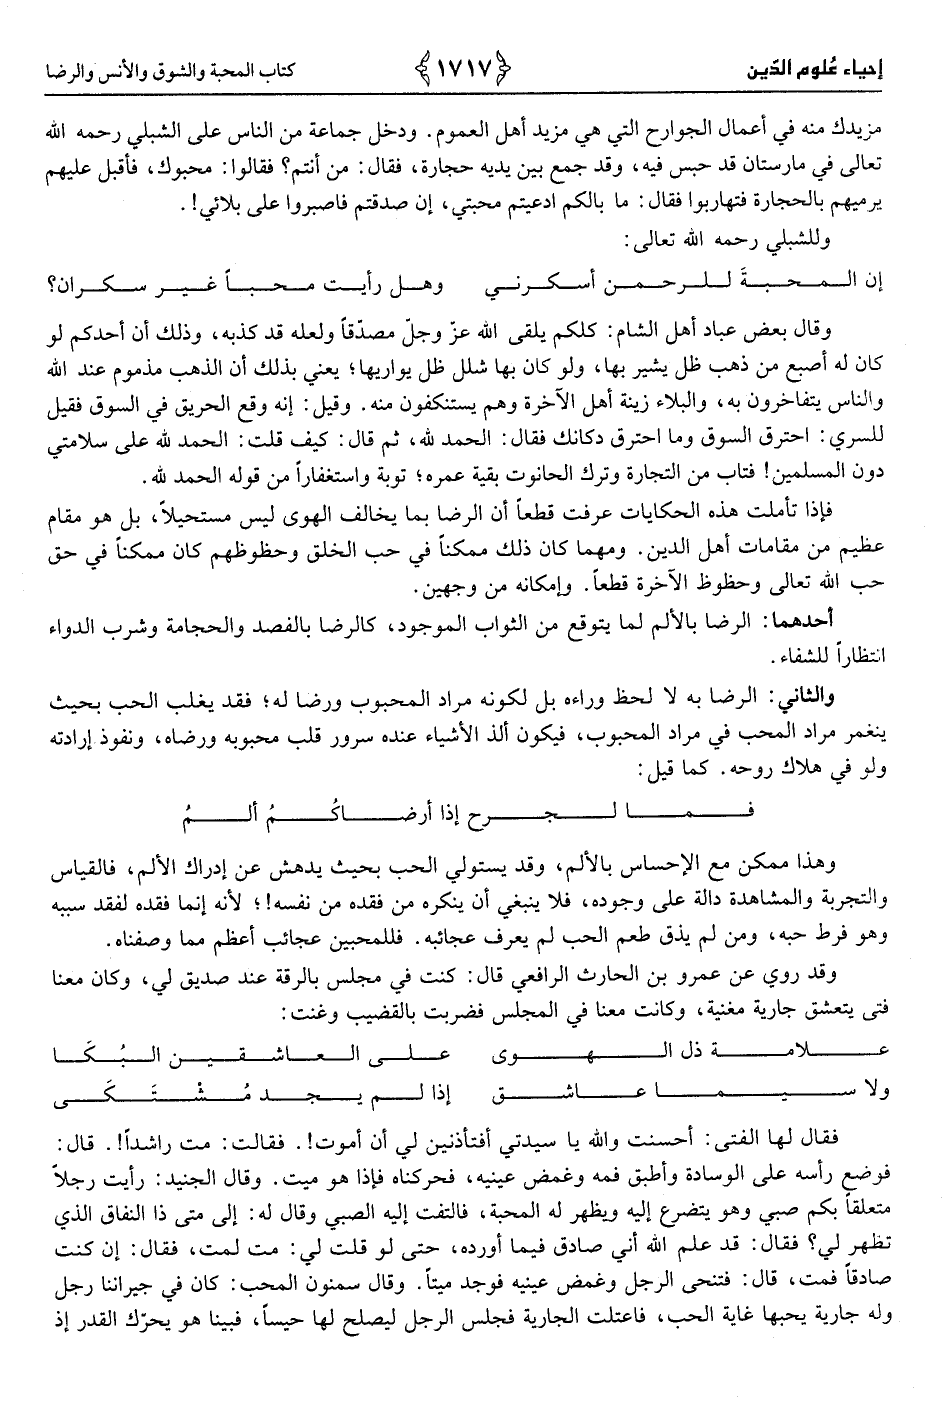 إحياء عُلوم الدّين ﴿١٧١٧﴾ كتاب المحبة والشوق والأنس والرضا
مزيدك منه في أعمال الجوارح التي هي مزيد أهل العموم. ودخل جماعة من الناس على الشبلي رحمه الله
تعالى في مارستان قد حبس فيه، وقد جمع بين يديه حجارة، فقال: من أنتم؟ فقالوا: محبوك، فأقبل عليهم
يرميهم بالحجارة فتهاربوا فقال: ما بالكم ادعيتم محبتي، إن صدقتم فاصبروا على بلائي!.
وللشبلي رحمه الله تعالى:
إن المحبةَ للرحمن أسكرني وهل رأيت محباً غير سكران؟
وقال بعض عباد أهل الشام: كلكم يلقى الله عزّ وجلّ مصدّقاً ولعله قد كذبه، وذلك أن أحدكم لو
كان له أصبع من ذهب ظل يشير بها، ولو كان بها شلل ظل يواريها؛ يعني بذلك أن الذهب مذموم عند الله
والناس يتفاخرون به، والبلاء زينة أهل الآخرة وهم يستنكفون منه. وقيل: إنه وقع الحريق في السوق فقيل
للسري: احترق السوق وما احترق دكانك فقال: الحمد لله، ثم قال: كيف قلت: الحمد لله على سلامتي
دون المسلمين! فتاب من التجارة وترك الحانوت بقية عمره؛ توبة واستغفاراً من قوله الحمد لله.
فإذا تأملت هذه الحكايات عرفت قطعاً أن الرضا بما يخالف الهوى ليس مستحيلاً، بل هو مقام
عظيم من مقامات أهل الدين. ومهما كان ذلك ممكناً في حب الخلق وحظوظهم كان ممكناً في حق
حب الله تعالى وحظوظ الآخرة قطعاً. وإمكانه من وجهين.
أحدهما: الرضا بالألم لما يتوقع من الثواب الموجود، كالرضا بالفصد والحجامة وشرب الدواء
انتظاراً للشفاء.
والثاني: الرضا به لا لحظ وراءه بل لكونه مراد المحبوب ورضا له؛ فقد يغلب الحب بحيث
ينغمر مراد المحب في مراد المحبوب، فيكون ألذ الأشياء عنده سرور قلب محبوبه ورضاه، ونفوذ إرادته
ولو في هلاك روحه. كما قيل:
فما لجرح إذا أرضاكُمُ ألمُ
وهذا ممكن مع الإحساس بالألم، وقد يستولي الحب بحيث يدهش عن إدراك الألم، فالقياس
والتجربة والمشاهدة دالة على وجوده، فلا ينبغي أن ينكره من فقده من نفسه!؛ لأنه إنما فقده لفقد سببه
وهو فرط حبه، ومن لم يذق طعم الحب لم يعرف عجائبه. فللمحبين عجائب أعظم مما وصفناه.
وقد روي عن عمرو بن الحارث الرافعي قال: كنت في مجلس بالرقة عند صديق لي، وكان معنا
فتى يتعشق جارية مغنية، وكانت معنا في المجلس فضربت بالقضيب وغنت:
علامة ذل الهوى على العاشقين البُكَا
ولا سيما عاشق إذا لم يجد مُشْتَكَى
فقال لها الفتى: أحسنت والله يا سيدتي أفتأذنين لي أن أموت!. فقالت: مت راشداً!. قال:
فوضع رأسه على الوسادة وأطبق فمه وغمض عينيه، فحركناه فإذا هو ميت. وقال الجنيد: رأيت رجلاً
متعلقاً بكم صبي وهو يتضرع إليه ويظهر له المحبة، فالتفت إليه الصبي وقال له: إلى متى ذا النفاق الذي
تظهر لي؟ فقال: قد علم الله أني صادق فيما أورده، حتى لو قلت لي: مت لمت، فقال: إن كنت
صادقاً فمت، قال: فتنحى الرجل وغمض عينيه فوجد ميتاً. وقال سمنون المحب: كان في جيراننا رجل
وله جارية يحبها غاية الحب، فاعتلت الجارية فجلس الرجل ليصلح لها حيساً، فبينا هو يحرّك القدر إذ